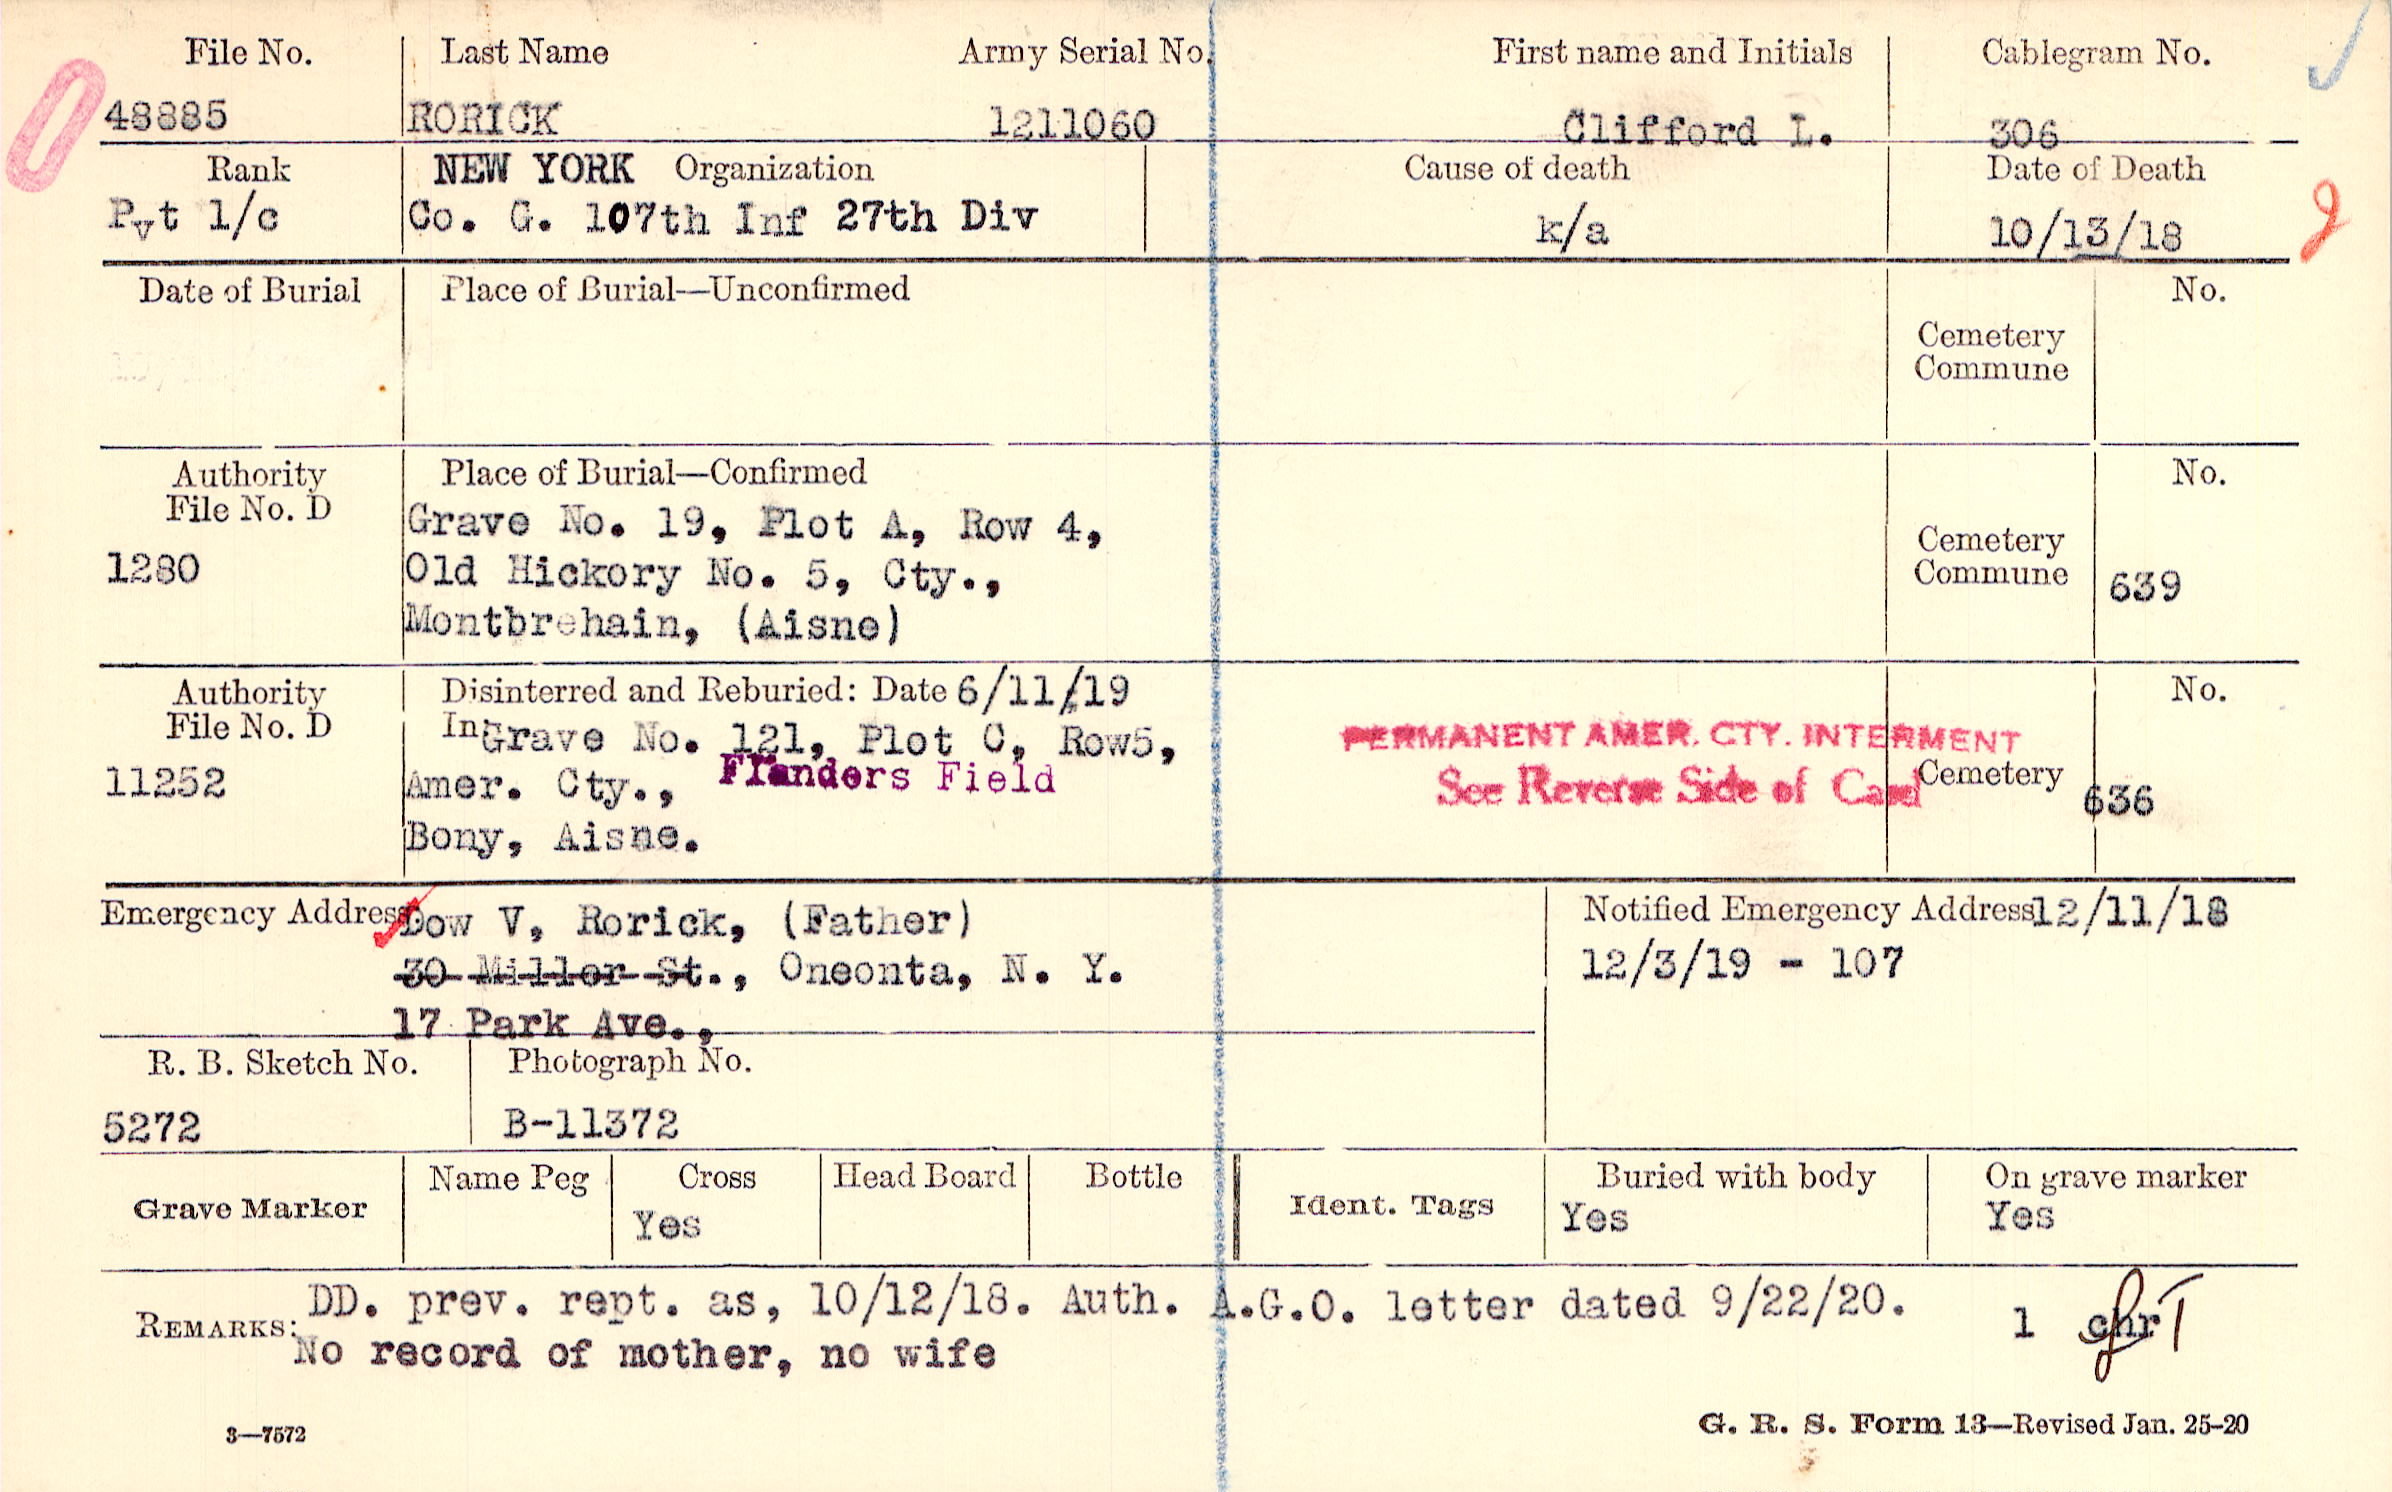 File No. Last Name Army Serial No. First name and Initials Cablegram No.
48885 RORICK 1211060 Clifford L. 306
Rank NEW YORK Organization Cause of death Date of Death
Pvt 1/c Co. G. 107th Inf 27th Div k/a 10/13/18
2
Date of Burial Place of Burial—Unconfirmed No.
Cemetery
Commune
Authority Place of Burial—Confirmed No.
File No. D
Grave No. 19, Plot A, Row 4,
1280 Old Hickory No. 5, Cty., Cemetery
Commune 639
Montbrehain, (Aisne)
Authority Disinterred and Reburied: Date 6/11/19 No.
File No. D In Grave No. 121, Plot C, Row5, PERMANENT AMER. CTY. INTERMENT
11252 Amer. Cty., Flanders Field See Reverse Side of Card Cemetery 636
Bony, Aisne.
Emergency Address Dow V, Rorick, (Father) Notified Emergency Address 12/11/18
30 Miller St., Oneonta, N. Y. 12/3/19 - 107
17 Park Ave.,
R. B. Sketch No. Photograph No.
5272 B-11372
Grave Marker Name Peg Cross Head Board Bottle Ident. Tags Buried with body On grave marker
Yes Yes Yes
REMARKS: DD. prev. rept. as, 10/12/18. Auth. A.G.O. letter dated 9/22/20. 1 chr
No record of mother, no wife
3—7572 G. R. S. Form 13—Revised Jan. 25-20